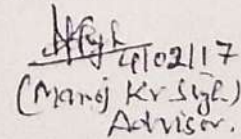 4/02/17
(Manoj Kr Sigh)
Advisor.